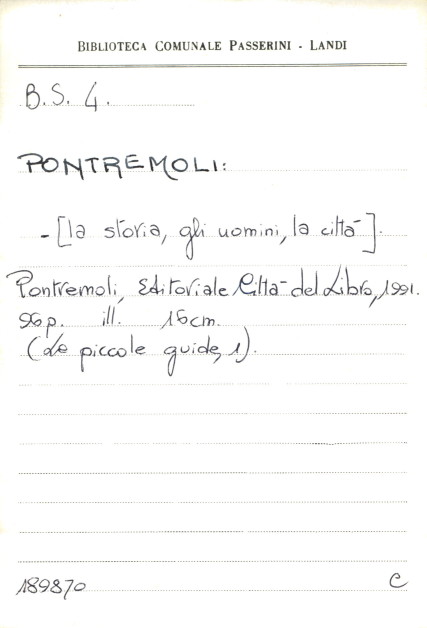 BIBLIOTECA COMUNALE PASSERINI - LANDI
B.S. 4.
PONTREMOLI:
- [la storia, gli uomini, la città].
Pontremoli, Editoriale Città del Libro, 1991.
96p. ill. 16cm.
(Le piccole guide, 1).
189870 C